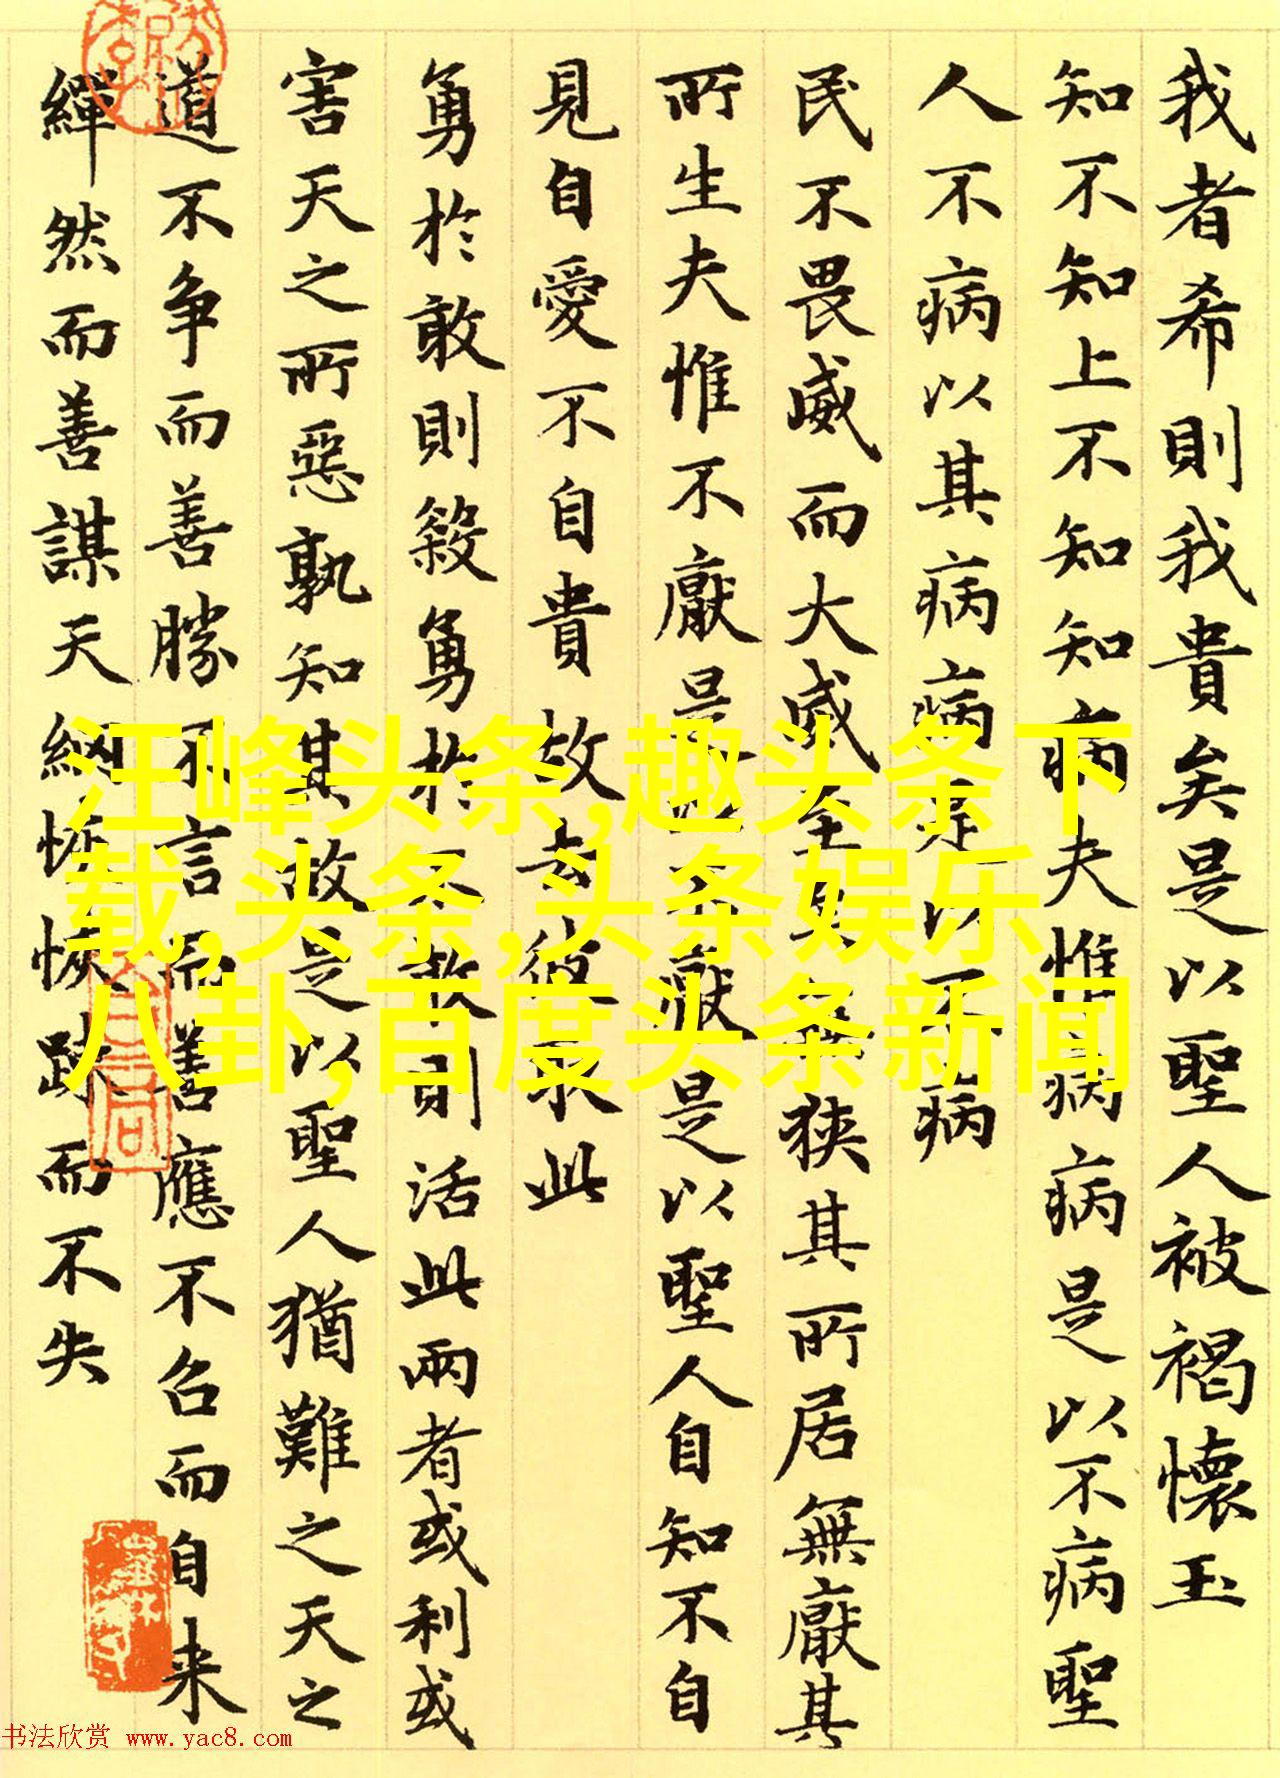 我者希則我貴矣是以聖人被褐懷玉
知不知上不知知病夫惟病病是以不病聖
人不病以其病病是以不病
民不畏威而大威至無狹其所居無厭其
所生夫惟不厭是以不厭是以聖人自知不自
見自愛不自貴故去彼取此
勇於敢則殺勇於不敢則活此兩者或利或
害天之所惡孰知其故是以聖人猶難之天之
道不争而善勝不言而善應不召而自来
繟然而善謀天網恢恢踈而不失
汪峰头条,趣头条下
载,头条,头条娱乐
八卦,百度头条新闻
书法欣赏 www.yac8.com